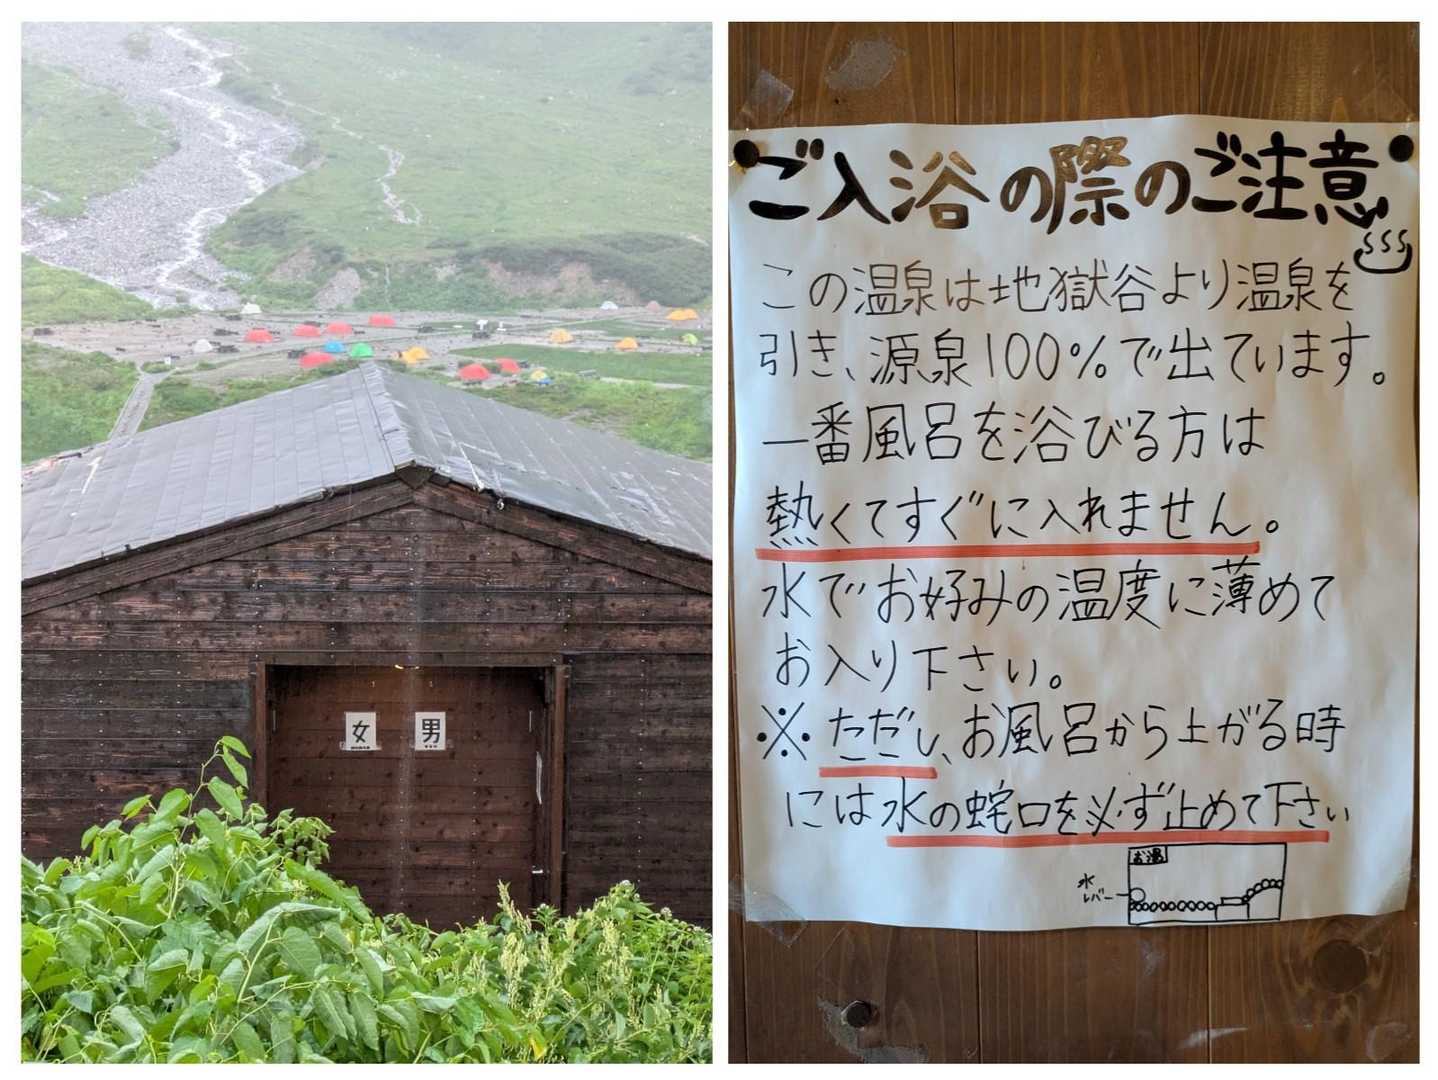 女
男
ご入浴の際のご注意
この温泉は地獄谷より温泉を
引き、源泉100%で出ています。
一番風呂を浴びる方は
熱くてすぐに入れません。
水でお好みの温度に薄めて
お入り下さい。
※ただし、お風呂から上がる時
には水の蛇口を必ず止めて下さい
お湯
水
レバー